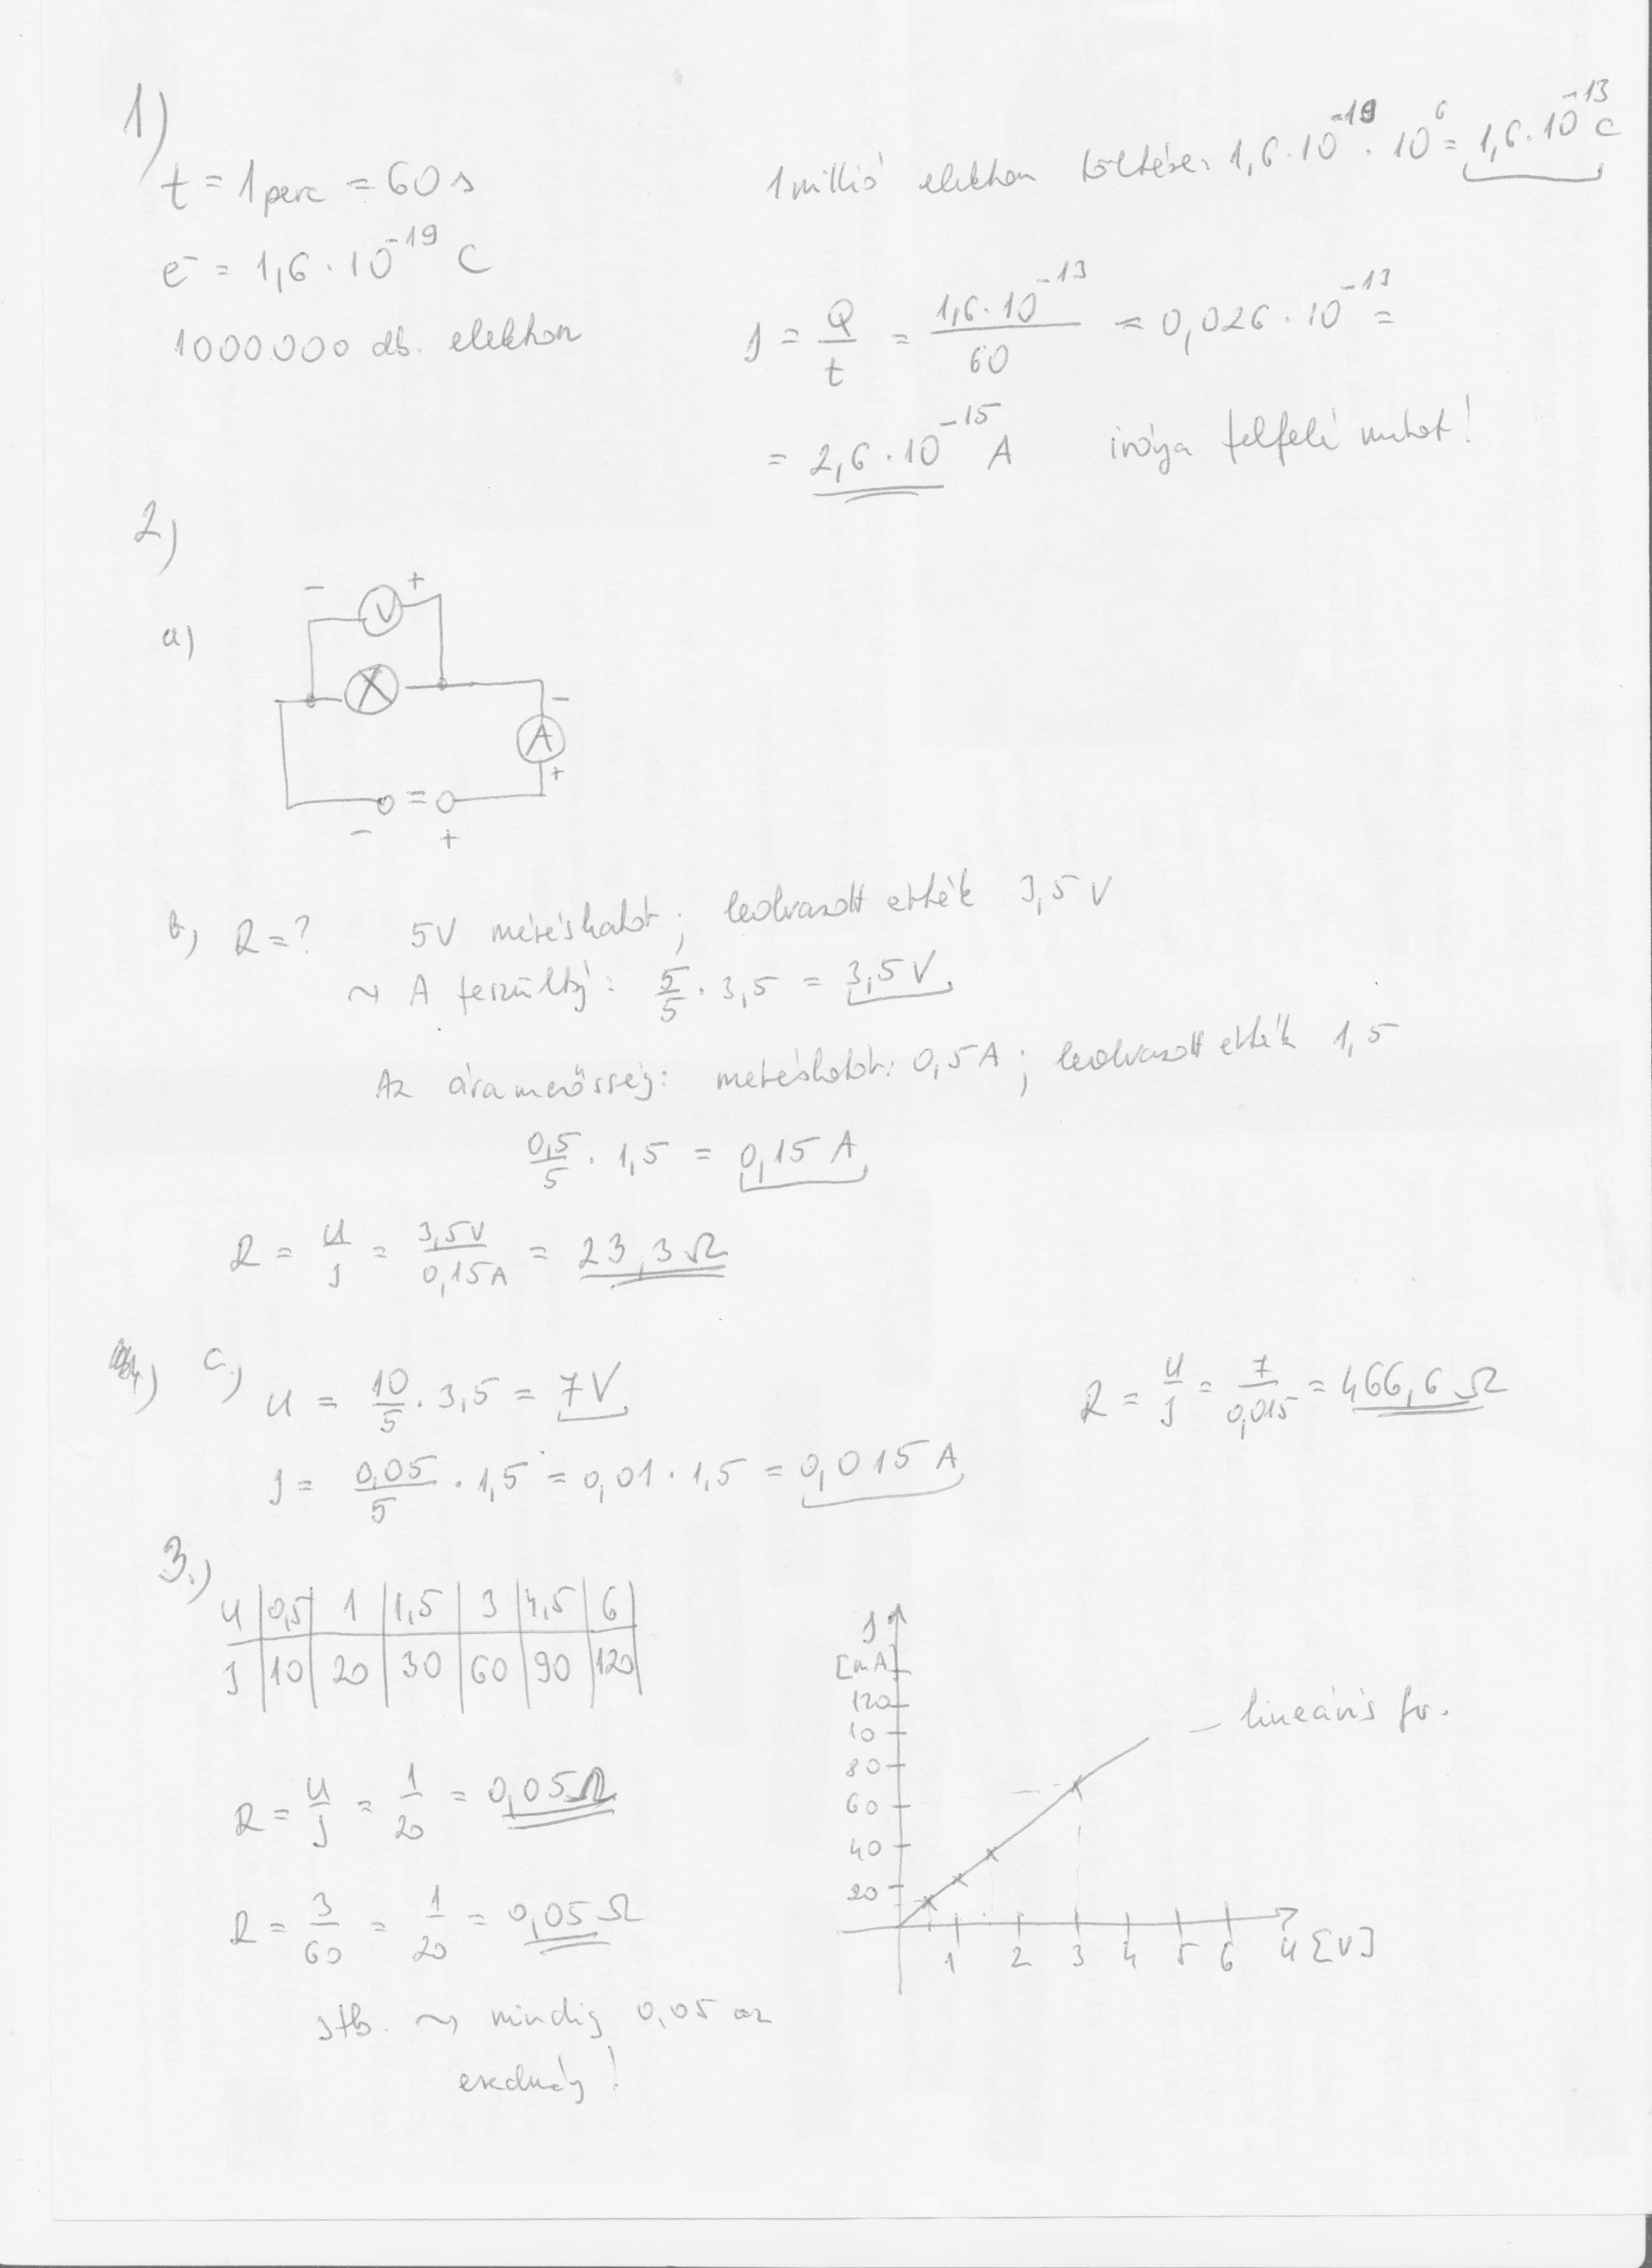 1)
t = 1 perc = 60 s
e⁻ = 1,6 · 10⁻¹⁹ C
1000000 db. elektron
1 millió elektron töltése: 1,6 · 10⁻¹⁹ · 10⁶ = 1,6 · 10⁻¹³ C
J = Q/t = 1,6 · 10⁻¹³/60 = 0,026 · 10⁻¹³ =
= 2,6 · 10⁻¹⁵ A iránya felfelé mutat!
2)
a)
- V +
X
-
A
+
=
- +
b) R = ? 5V méréshatár; leolvasott érték 3,5 V
~ A feszültség: 5/5 · 3,5 = 3,5 V
Az áramerősség: méréshatár: 0,5 A; leolvasott érték 1,5
0,5/5 · 1,5 = 0,15 A
R = U/J = 3,5V/0,15A = 23,3 Ω
c.) U = 10/5 · 3,5 = 7 V
J = 0,05/5 · 1,5 = 0,01 · 1,5 = 0,015 A
R = U/J = 7/0,015 = 466,6 Ω
3.)
U | 0,5 | 1 | 1,5 | 3 | 4,5 | 6
J | 10 | 20 | 30 | 60 | 90 | 120
R = U/J = 1/20 = 0,05 Ω
R = 3/60 = 1/20 = 0,05 Ω
stb. ~ mindig 0,05 az
eredmény!
J
[mA]
120
10
80
60
40
20
1 2 3 4 5 6 U [V]
– lineáris fv.